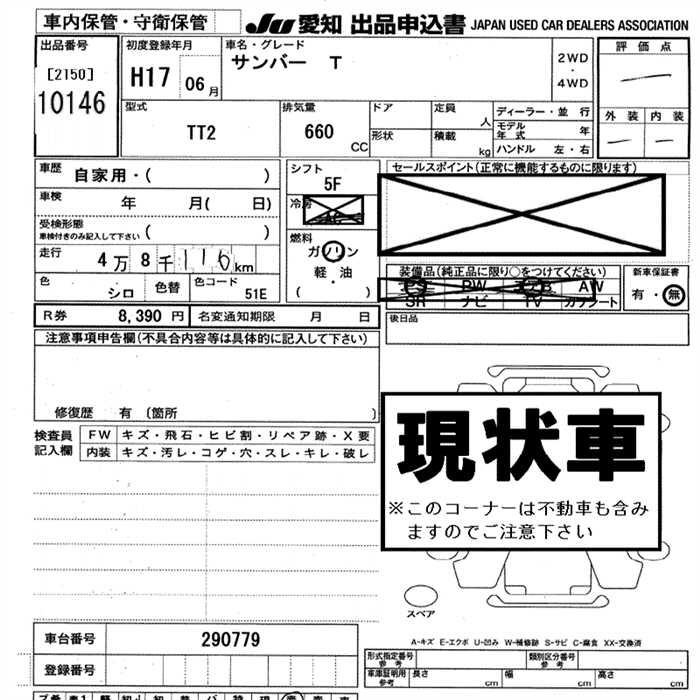 車内保管・守衛保管
JU 愛知 出品申込書 JAPAN USED CAR DEALERS ASSOCIATION
出品番号
[2150]
10146
初度登録年月
H17 06 月
車名・グレード
サンバー T
2WD
・
4WD
評価点
外装 内装
型式
TT2
排気量
660
CC
ドア
形状
定員
人
積載
kg
ディーラー・並行
モデル年式 年
ハンドル 左・右
車歴
自家用・( )
車検 年 月( 日)
受検形態
車検付きのみ記入して下さい ( )
走行
4万8千116km
色
シロ
色替
色コード
51E
シフト
5F
冷房
燃料
ガソリン
軽・油
( )
セールスポイント(正常に機能するものに限ります)
装備品(純正品に限り○をつけてください)
PS PW エアB AW
SR ナビ TV カワシート
新車保証書
有・無
R券 8,390 円 名変通知期限 月 日
後日品
注意事項申告欄(不具合内容等は具体的に記入して下さい)
修復歴 有 〔箇所 〕
検査員
記入欄
FW キズ・飛石・ヒビ割・リペア跡・X要
内装 キズ・汚レ・コゲ・穴・スレ・キレ・破レ
現状車
※このコーナーは不動車も含み
ますのでご注意下さい
スペア
A-キズ E-エクボ U-凹み W-補修跡 S-サビ C-腐食 XX-交換済
車台番号 290779
登録番号
形式指定番号
参考
類別区分番号
参考
車庫証明用
参考
長さ cm 幅 cm 高さ cm